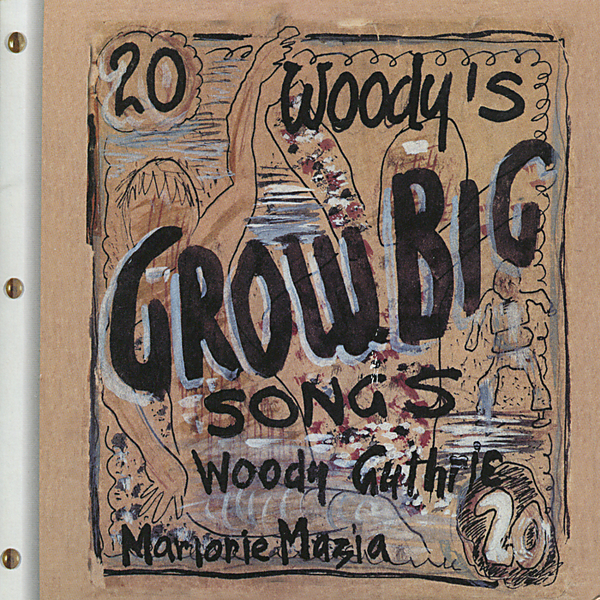 20 Woody's
GROW BIG
SONGS
Woody Guthrie
20
Marjorie Mazia